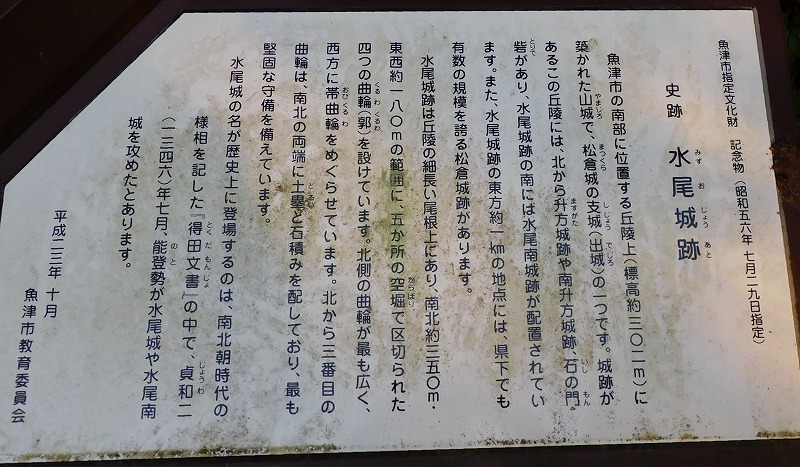 魚津市指定文化財　記念物（昭和五六年　七月二九日指定）
史跡　水尾城跡
みず　お　じょう　あと
魚津市の南部に位置する丘陵上（標高約三〇二ｍ）に
築かれた山城で、松倉城の支城（出城）の一つです。城跡が
やまじろ　まつくら　しじょう　でじろ
あるこの丘陵には、北から升方城跡や南升方城跡、石の門
ますがた　いし　もん
砦があり、水尾城跡の南には水尾南城跡が配置されてい
とりで
ます。また、水尾城跡の東方約一㎞の地点には、県下でも
有数の規模を誇る松倉城跡があります。
水尾城跡は丘陵の細長い尾根上にあり、南北約三五〇ｍ・
東西約一八〇ｍの範囲に、五か所の空堀で区切られた
からぼり
四つの曲輪（郭）を設けています。北側の曲輪が最も広く、
くるわ　くるわ
西方に帯曲輪をめぐらせています。北から三番目の
おびくるわ
曲輪は、南北の両端に土塁と石積みを配しており、最も
どるい
堅固な守備を備えています。
水尾城の名が歴史上に登場するのは、南北朝時代の
様相を記した『得田文書』の中で、貞和二
とくだ　もんじょ　じょうわ
（一三四六）年七月、能登勢が水尾城や水尾南
のと
城を攻めたとあります。
平成二三年　十月
魚津市教育委員会